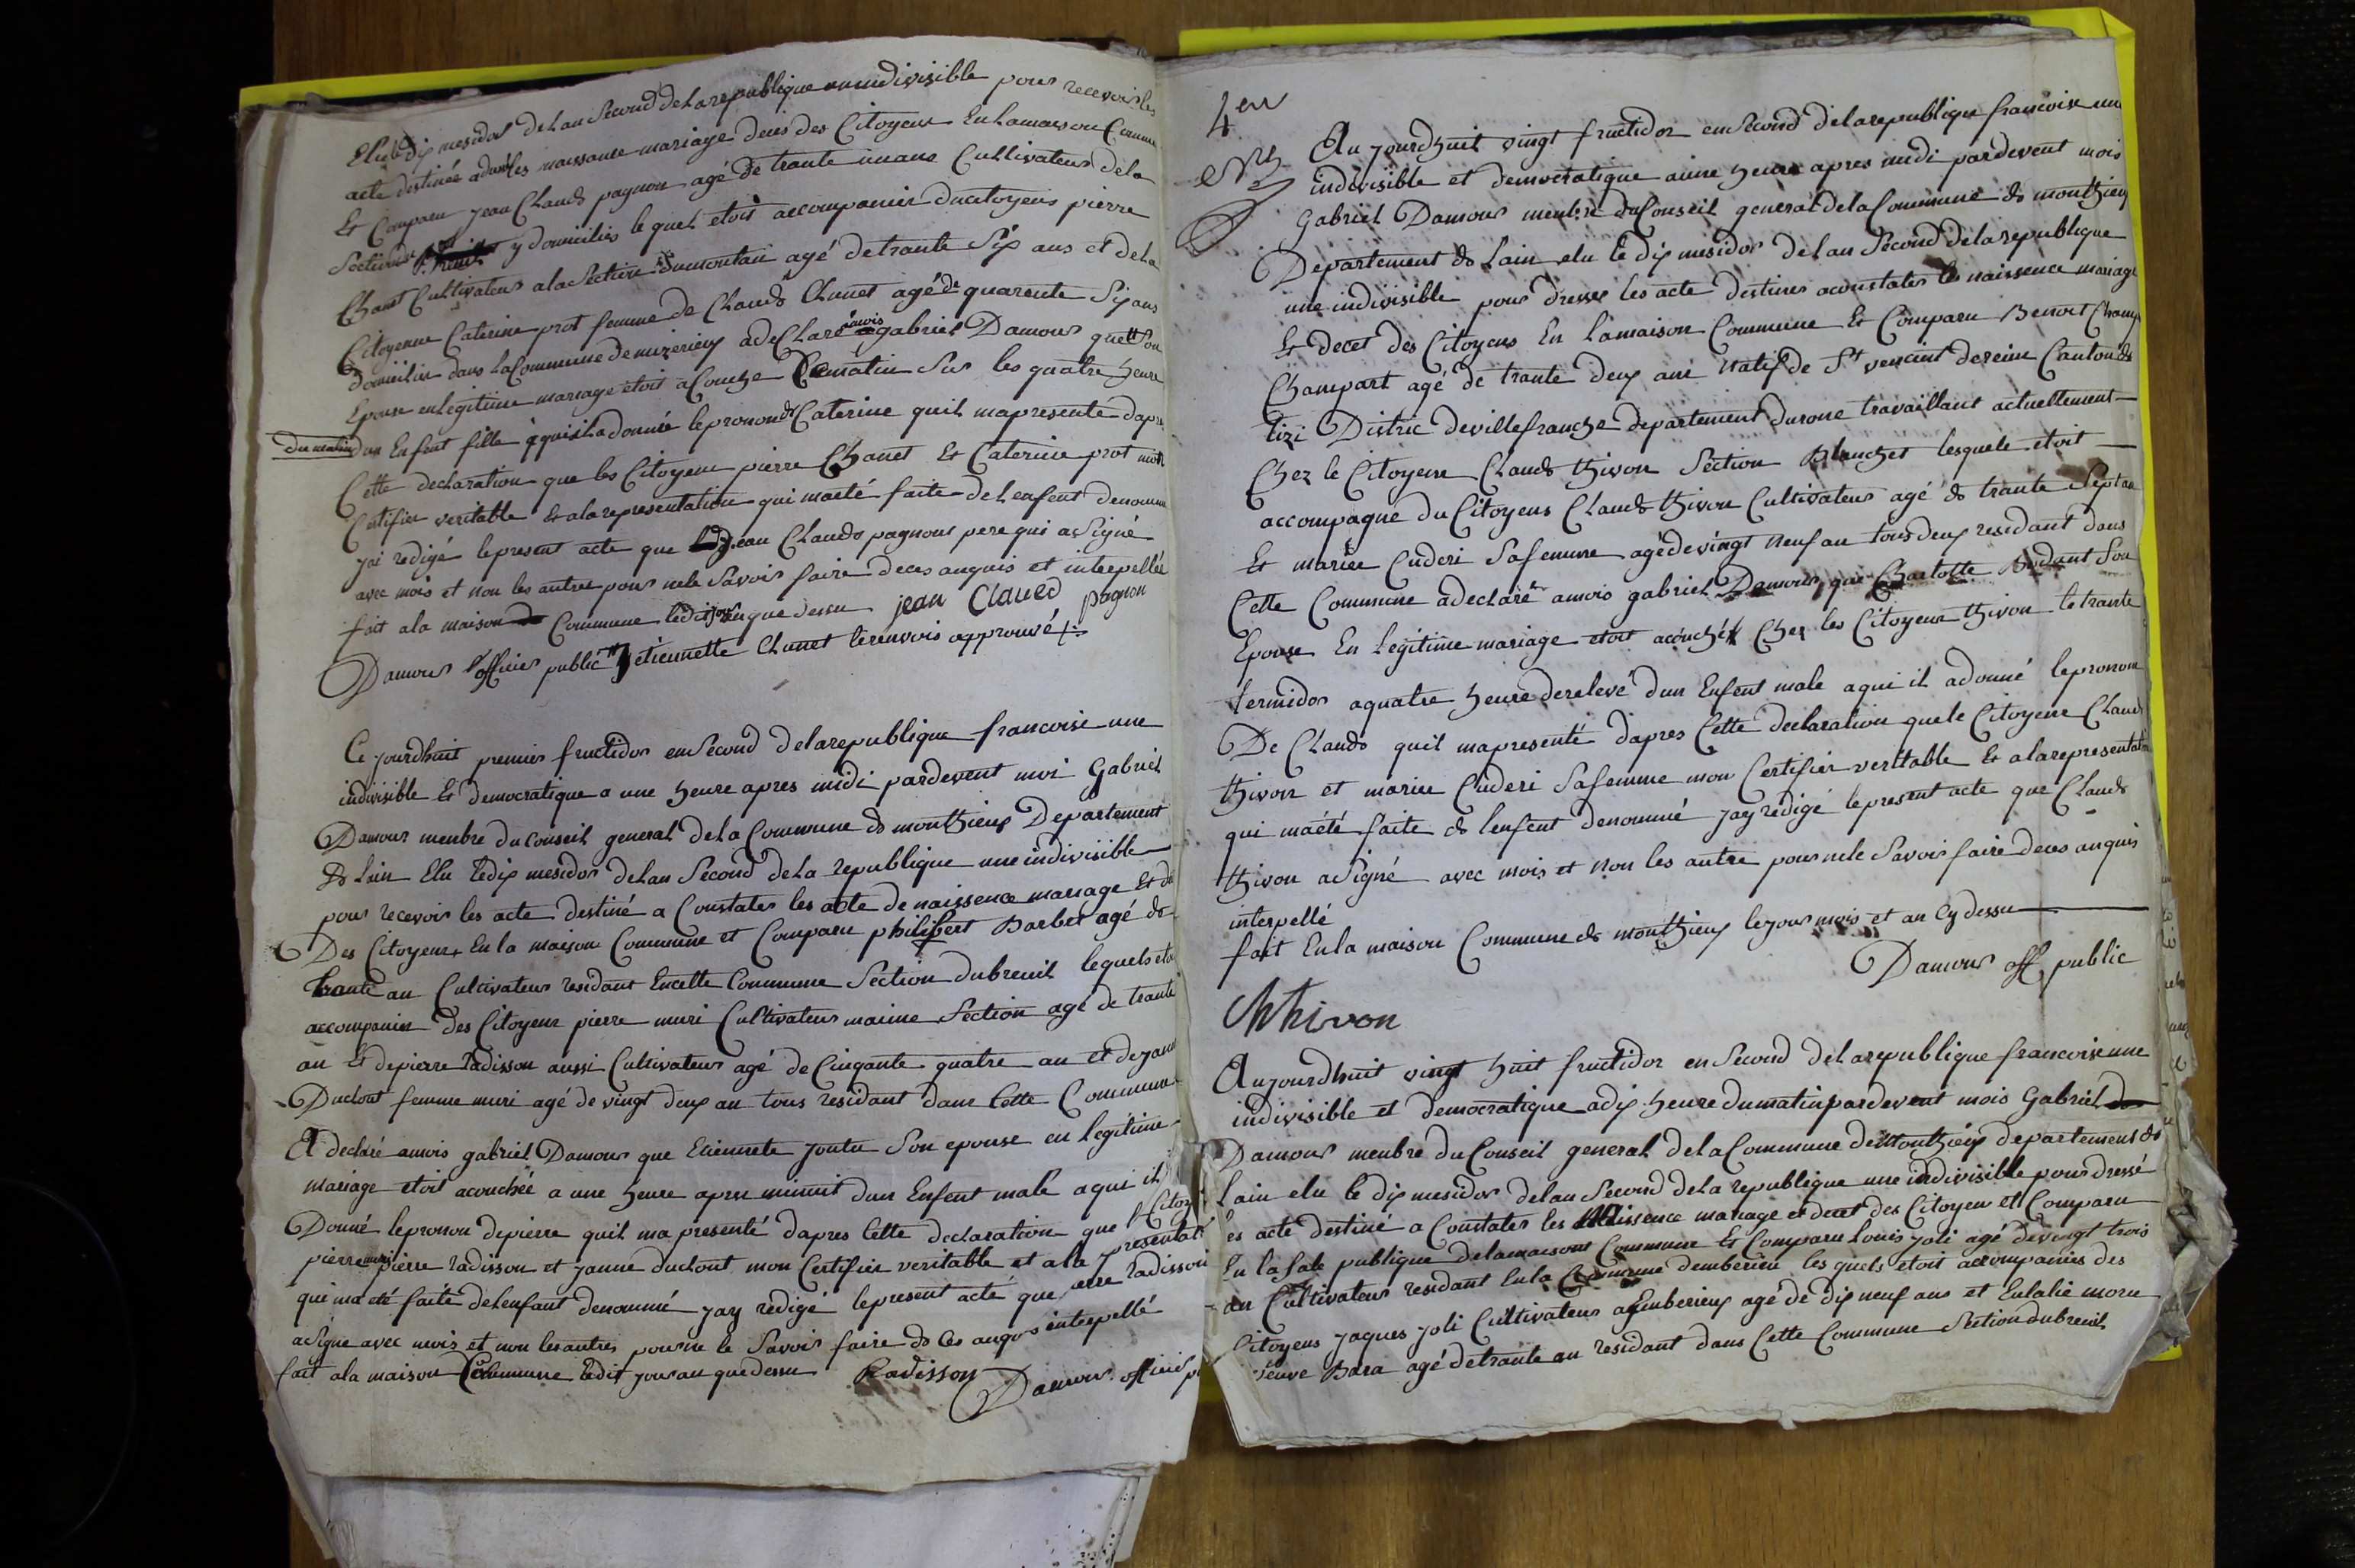 Elu le dix mesidor de lan Second de La republique une indivisible pour recevoir les
acte destinée a dresser les naissance mariage deces des Citoyens En la maison Commune
Et Comparu jean Claude pagnon agé de trante un ans Cultivateur de la
Section y domicilier le quel etoit accompanier du citoyens pierre
Chanet Cultivateur a la Section Dumontau agé de trante Six ans et de la
Citoyenne Caterine prot femme de Claude Chanet agé de quarente Six ans
domicilier dans la Commune de mizerieux a de Claré a mois gabriel Damour que Son
Epouse en legitime mariage etoit acouche Ce matin Sur les quatre heure
du matin dun Enfent fille a qui il a donnée le pronom de Caterine quil ma presenté dapres
Cette declaration que les Citoyens pierre Chanet Et Caterine prot mont
Certifier veritable Et a la representation qui ma eté faite de Lenfent denommé
jai redigé le present acte que led jean Claude pagnon pere qui a Signé
avec mois et non les autre pour ne le Savoir faire de ces anquis et interpellée
fait a la maison Commune ledit jour an que dessu jean Claued pagnon
Damour officier public etiennette Chanet le renvois approuvé
Ce jourdhuit premier fructidor en Second de la republique francoise une
indivisible Et democratique a une heure apres midi pardevent moi Gabriel
Damour menbre du Conseil general de La Commune de monthieux Departement
de Lain Elu le dix mesidor de lan Second de La republique une indivisible
pour recevoir les acte destiné a Constater les acte de naissence mariage Et de
Des Citoyens En la maison Commune et Comparu philibert Barbet agé de
trante an Cultivateur residant En cette Commune Section du breuil lequels etoi
accompanier des Citoyens pierre muri Cultivateur maime Section agé de trante
an Et de pierre radisson aussi Cultivateur agé de Cinqante quatre an et de janne
Duclout femme muri agé de vingt deux an tous residant dans Cette Commune
A declaré amois gabriel Damour que Etiennete joutu Son epouse en legitime
mariage etoit acouchée a une heure apres minuit dun Enfent male a qui il
Donné le pronon de pierre quil ma presenté dapres Cette declaration que Citoy
pierre muri pierre radisson et janne duclout mon Certifier veritable et a la presentati
qui ma eté faite de lenfant denommé jay redigé le present acte que pierre radisson
a Signe avec mois et non les autres pour ne le Savoir faire de Ces anquis interpellé
fait a la maison Commune ledit jour an que dessu Radisson Damour officier p
4eu
Au jourdhuit vingt fructidor en Second de la republique francoise une
indivisible et democratique a une heure apres midi pardevent mois
Gabriel Damour menbre du Conseil general de la Commune de monthieux
Departement de Lain elu le dix mesidor de lan Second de la republique
une indivisible pour dresser les acte destines a constater les naissence mariage
Et decet des Citoyens En la maison Commune Et Comparu Benoit Champ
Champart agé de trante deux ans natif de St vencent de reins Canton de
tizi Distric de villefranche departement du rone travaillant actuellement
Chez le Citoyens Claude thivon Section Blanchet lesquele etoit
accompagné du Citoyens Claude thivon Cultivateur agé de trante Sept an
Et mariee Cuderi Sa femme agé de vingt neuf an tous deux residant dans
Cette Commune a declaré amois gabriel Damour que Charlotte Son
Epouse En legitime mariage etoit acouchée Chez les Citoyens thivon le trante
termidor a quatre heure de relevé dun Enfent male a qui il a donné le pronom
De Claude quil mapresenté dapres Cette declaration que le Citoyens Claude
thivon et mariee Cuderi Sa femme mon Certifier veritable Et a la representation
qui ma été faite de lenfent denommé jay redigé le present acte que Claude
thivon a Signé avec mois et non les autre pour ne le Savoir faire de ces anquis
interpellé
fait En la maison Commune de monthieux le jour mois et an Cy dessu
Damour off public
Cl thivon
Aujourdhuit vingt huit fructidor en Second de la republique francoise une
indivisible et democratique a dix heure du matin pardevent mois Gabriel
Damour menbre du Conseil general de La Commune de Monthieux departement de
Lain elu le dix mesidor de lan Second de la republique une indivisible pour dressé
les acte destiné a Constater les Naissence mariage et decet des Citoyen et Comparu
En la sale publique de la maison Commune Et Comparu louis joli agé de vingt trois
an Cultivateur residant En la Commune demberieu les quels etoit accompanies des
Citoyens jaques joli Cultivateur a Emberieux agé de dix neuf ans et Eulalie moru
veuve Bara agé de trante an residant dans Cette Commune Section du breuil